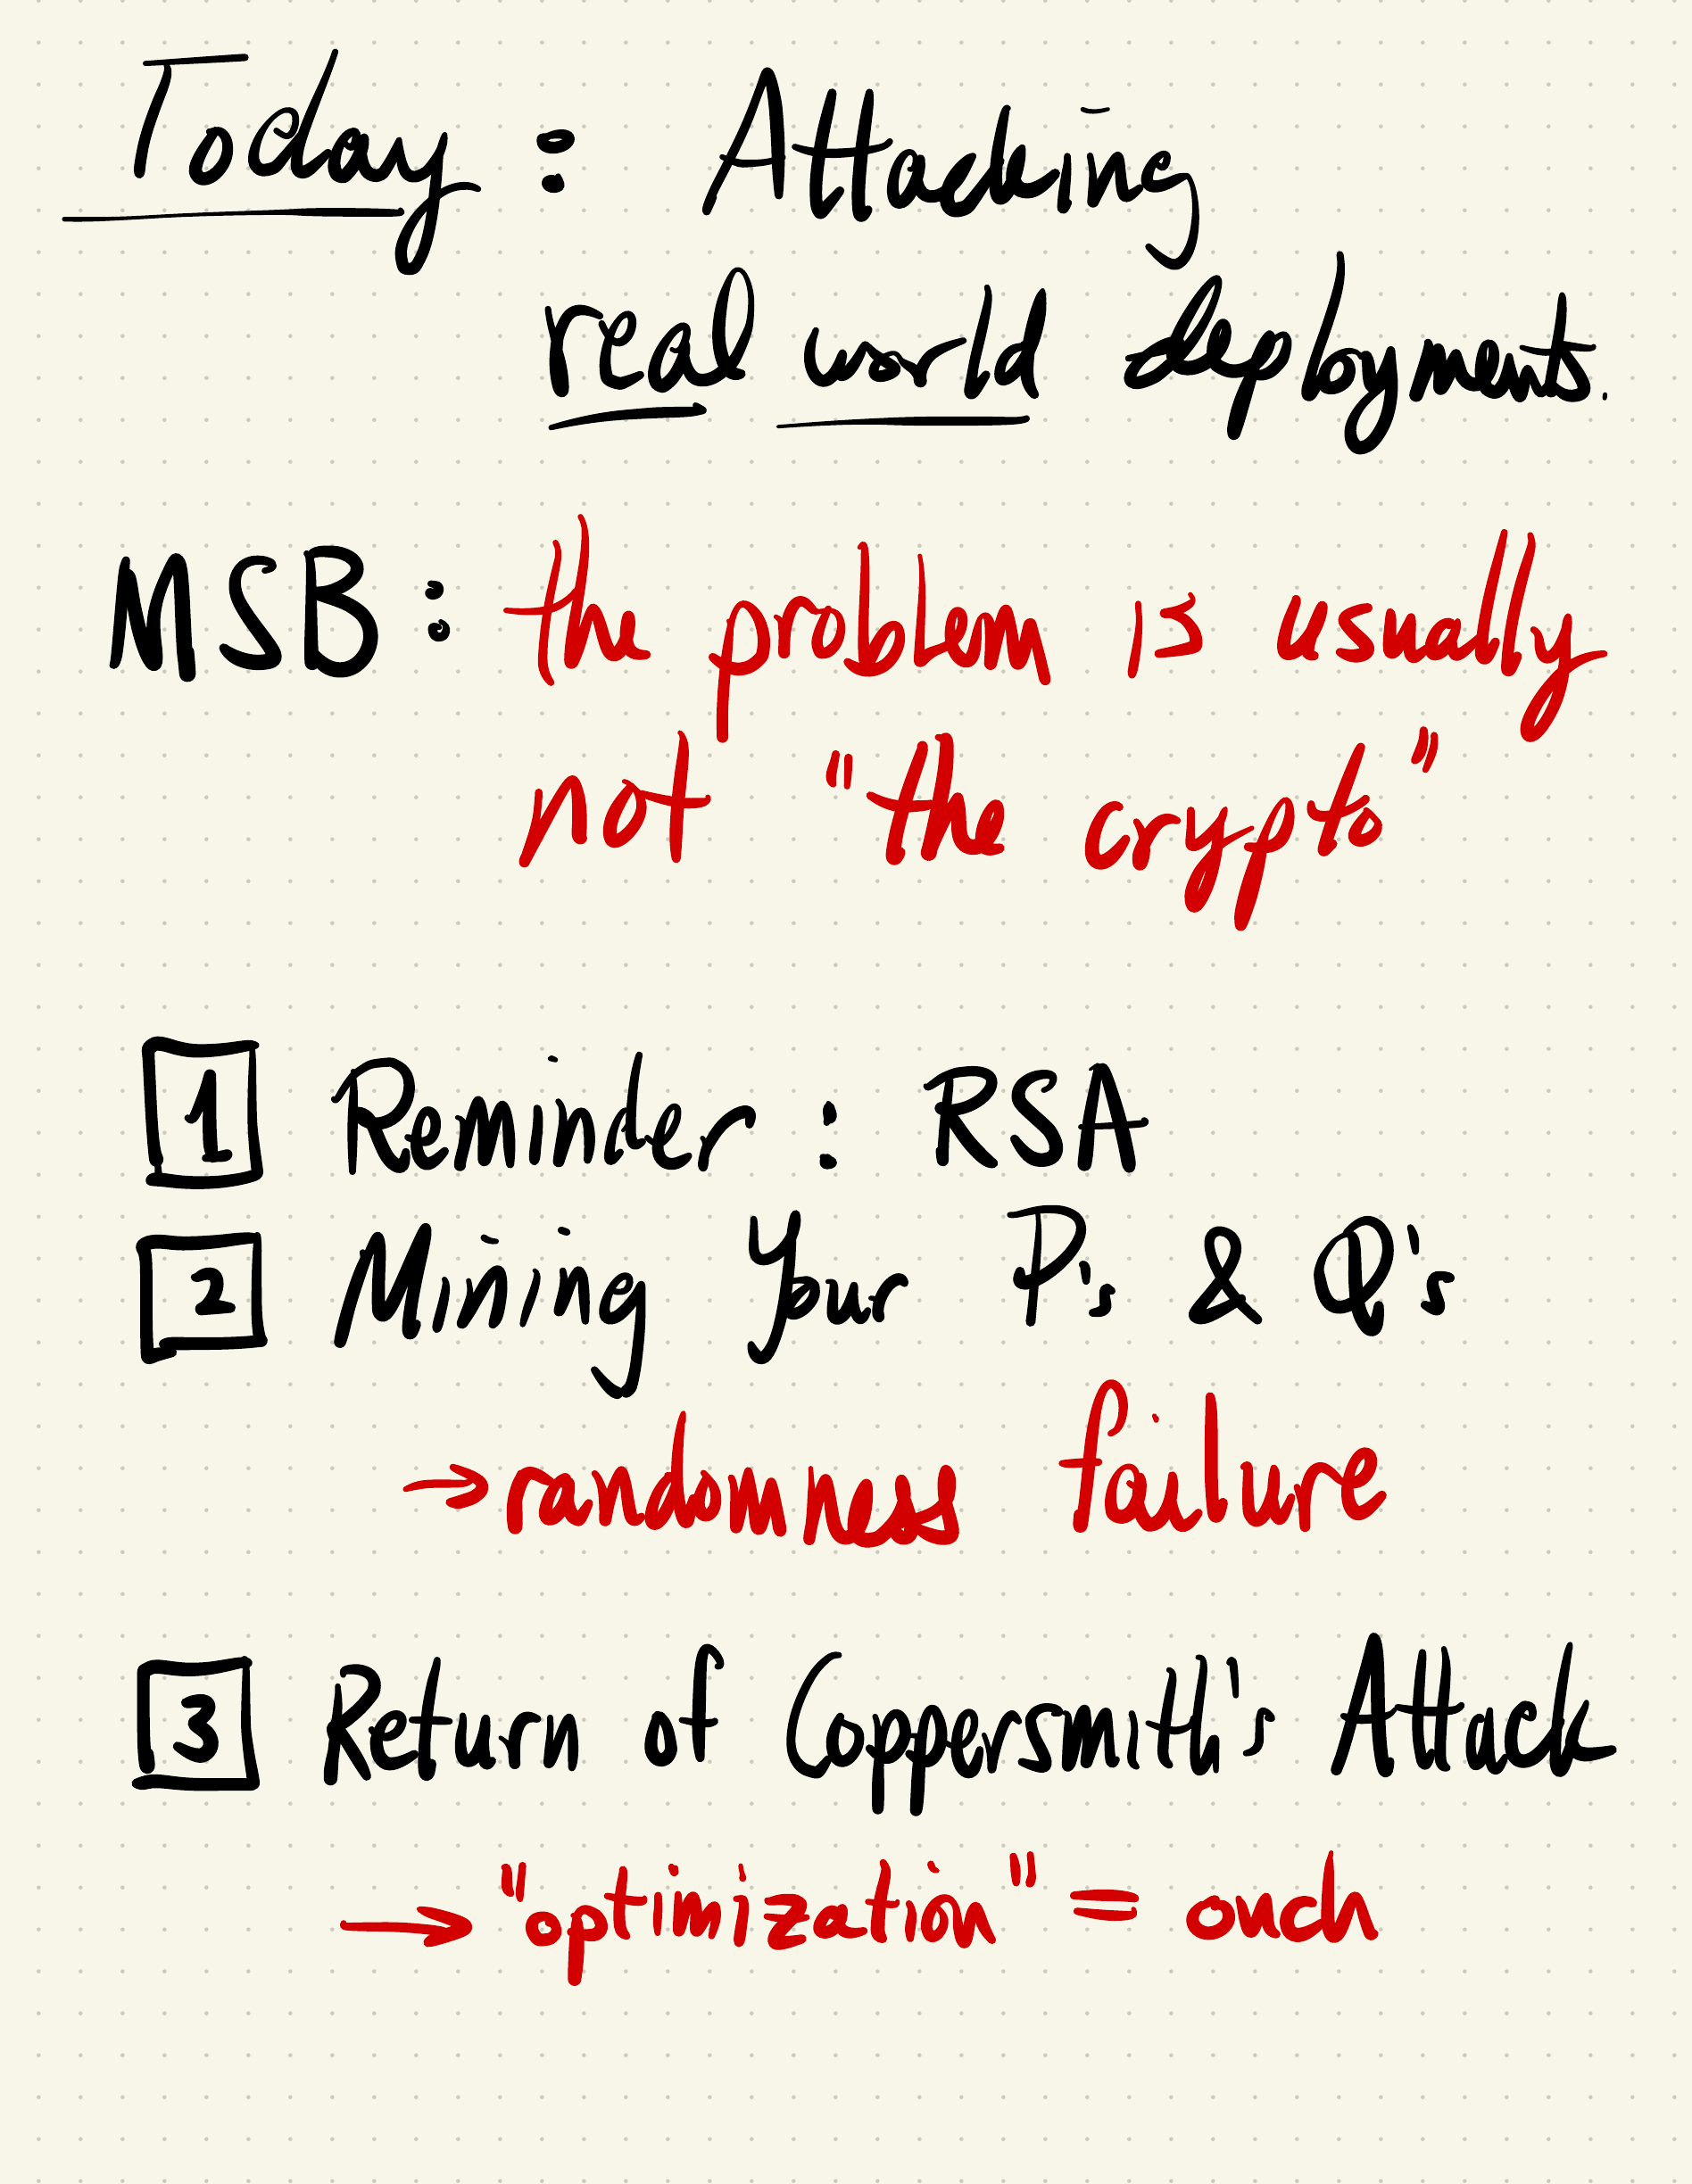 Today: Attacking
real world deployments.
MSB: the problem is usually
not "the crypto"
1 Reminder: RSA
2 Mining Your P's & Q's
→ randomness failure
3 Return of Coppersmith's Attack
→ "optimization" = ouch